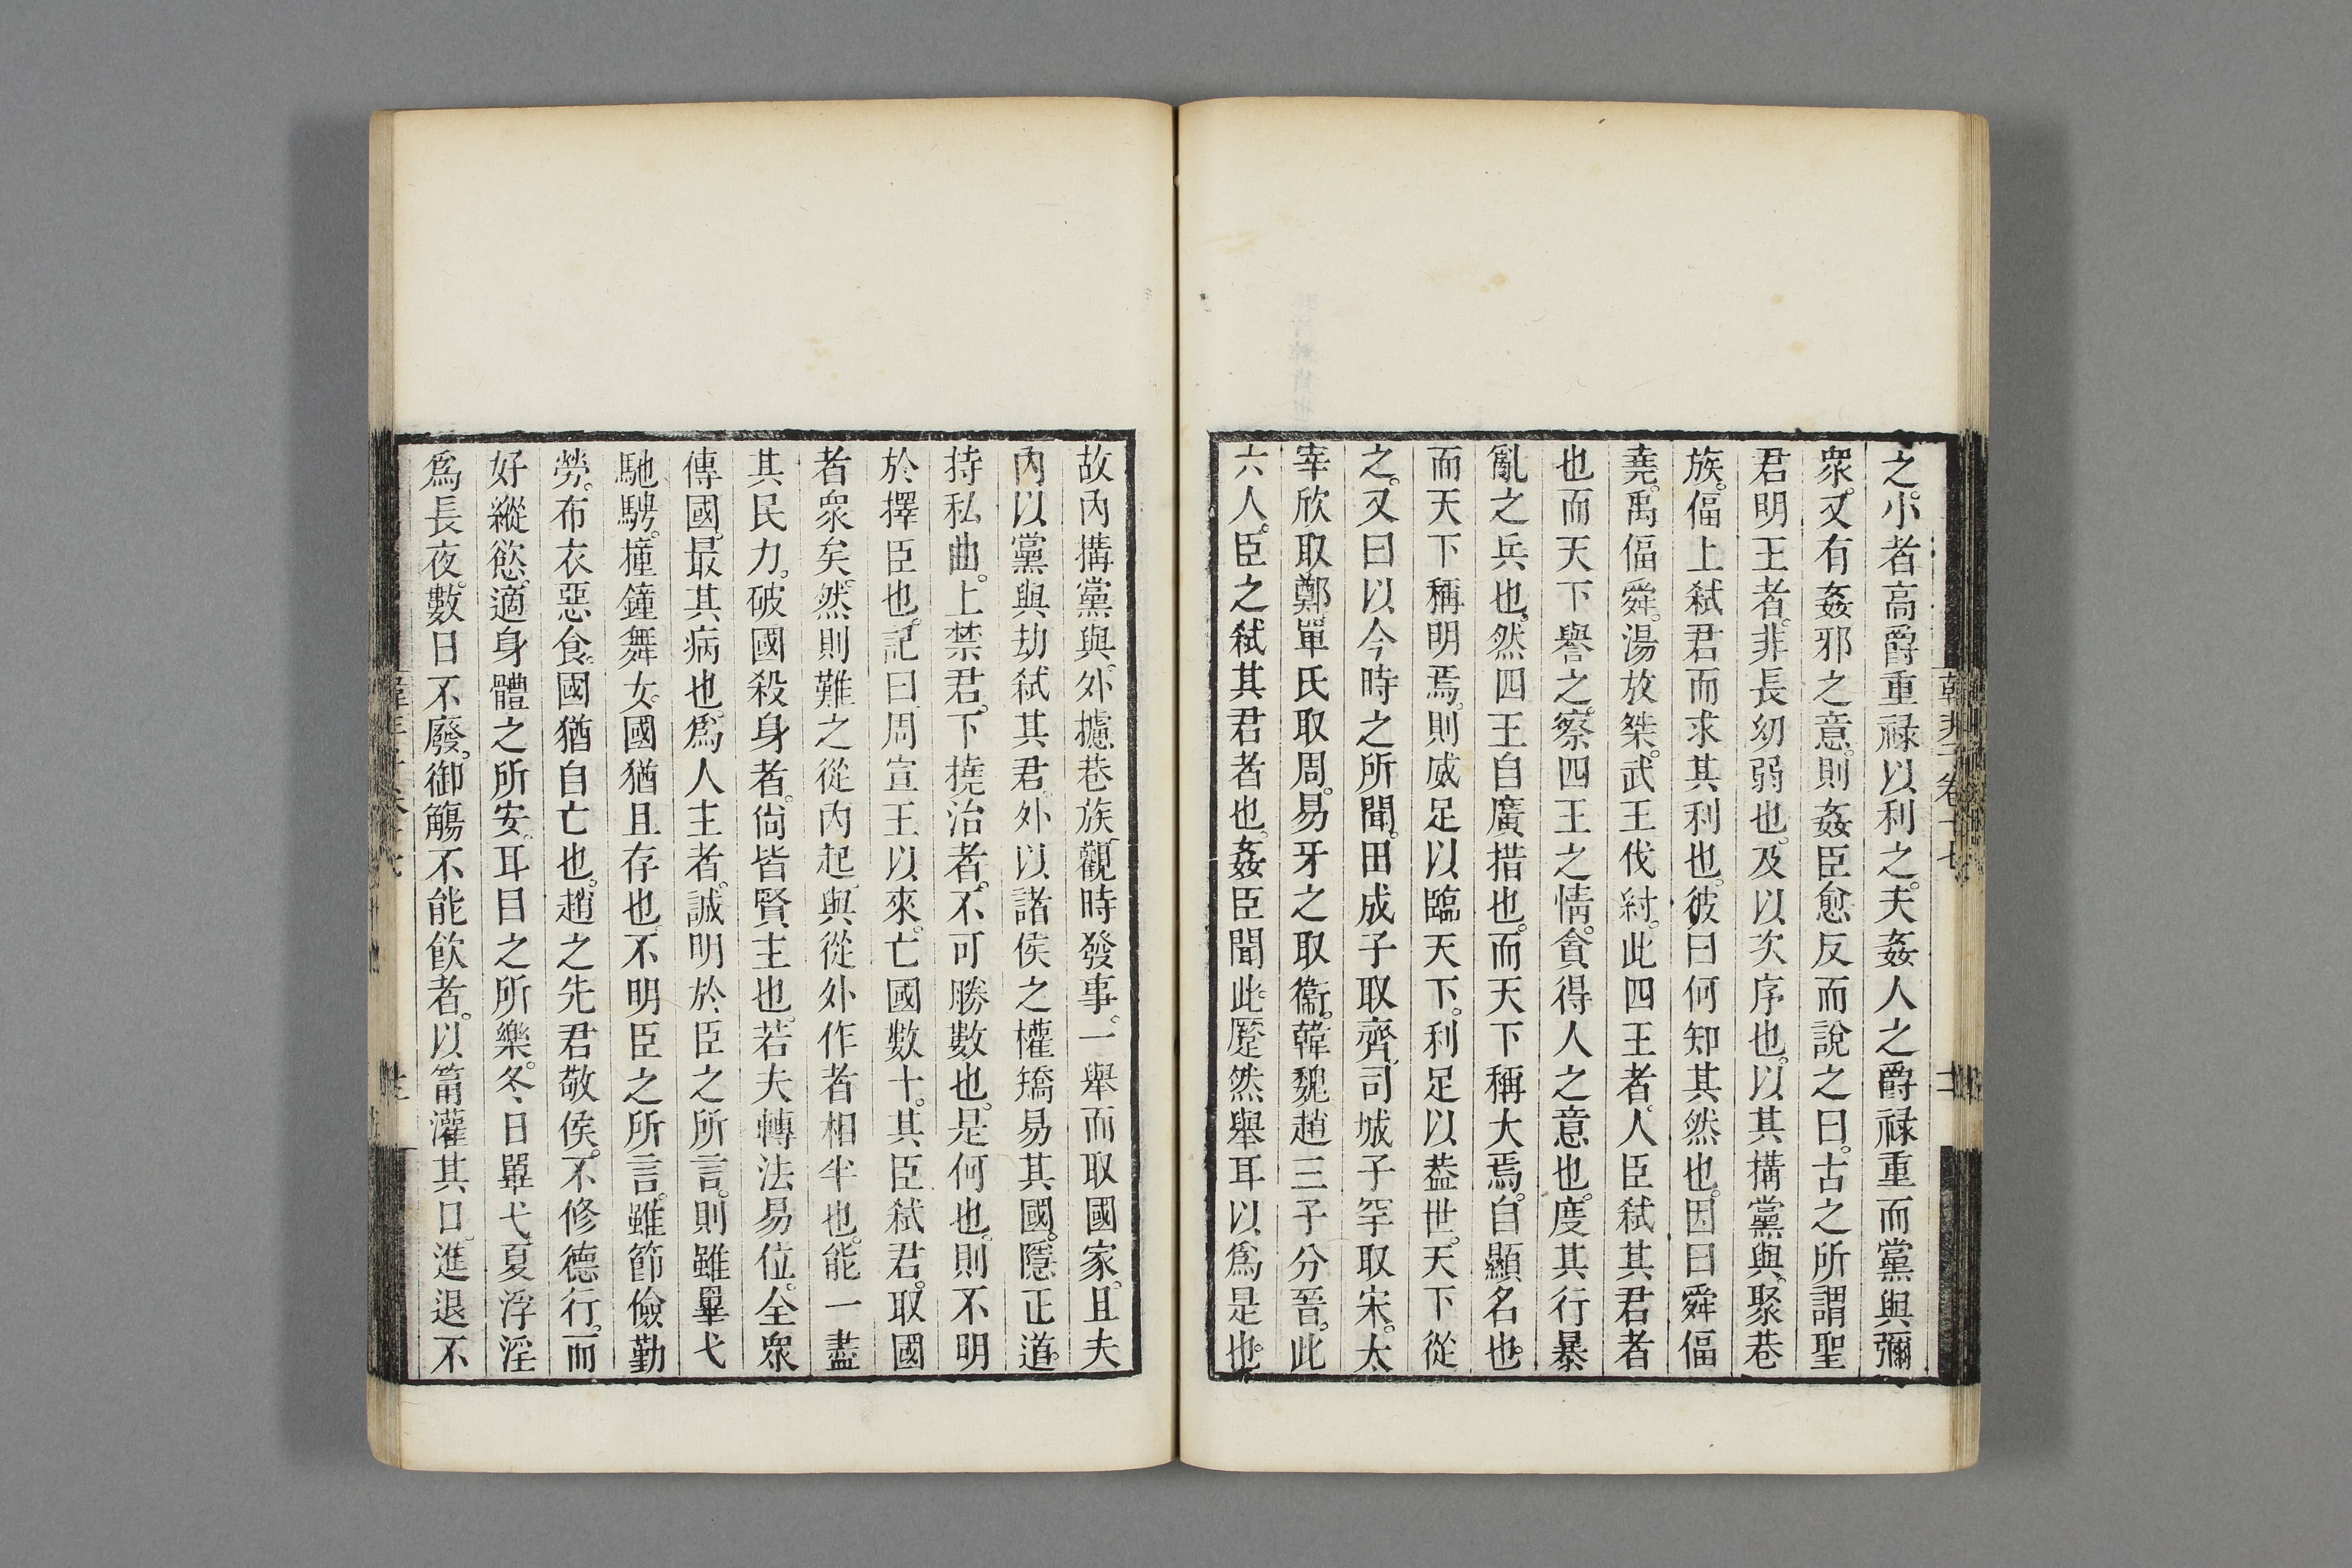 之。小者高爵重祿以利之。夫姦人之爵祿重而黨與彌
衆。又有姦邪之意。則姦臣愈反而說之曰。古之所謂聖
君明王者。非長幼弱也。及以次序也。以其搆黨與。聚巷
族。偪上弒君而求其利也。彼曰何知其然也。因曰舜偪
堯。禹偪舜。湯放桀。武王伐紂。此四王者。人臣弒其君者
也而天下譽之。察四王之情。貪得人之意也。度其行暴
亂之兵也。然四王自廣措也。而天下稱大焉。自顯名也。
而天下稱明焉。則威足以臨天下。利足以葢世。天下從
之。又曰以今時之所聞。田成子取齊。司城子罕取宋。太
宰欣取鄭。單氏取周。易牙之取衞。韓魏趙三子分晉。此
六人。臣之弒其君者也。姦臣聞此。蹷然舉耳以爲是也。
韓非子卷十七
故內搆黨與。外攄巷族。觀時發事。一舉而取國家。且夫
內以黨與劫弒其君。外以諸侯之權矯易其國。隱正道。
持私曲。上禁君。下撓治者。不可勝數也。是何也。則不明
於擇臣也。記曰周宣王以來。亡國數十。其臣弒君。取國
者衆矣。然則難之從內起。與從外作者相半也。能一盡
其民力。破國殺身者。尙皆賢主也。若夫轉法易位。全衆
傳國。最其病也。爲人主者。誠明於臣之所言。則雖畢弋
馳騁。撞鐘舞女。國猶且存也。不明臣之所言。雖節儉勤
勞。布衣惡食。國猶自亡也。趙之先君敬侯。不修德行。而
好縱慾。適身體之所安。耳目之所樂。冬日畢弋。夏浮淫
爲長夜。數日不廢。御觴不能飮者。以筩灌其口。進退不